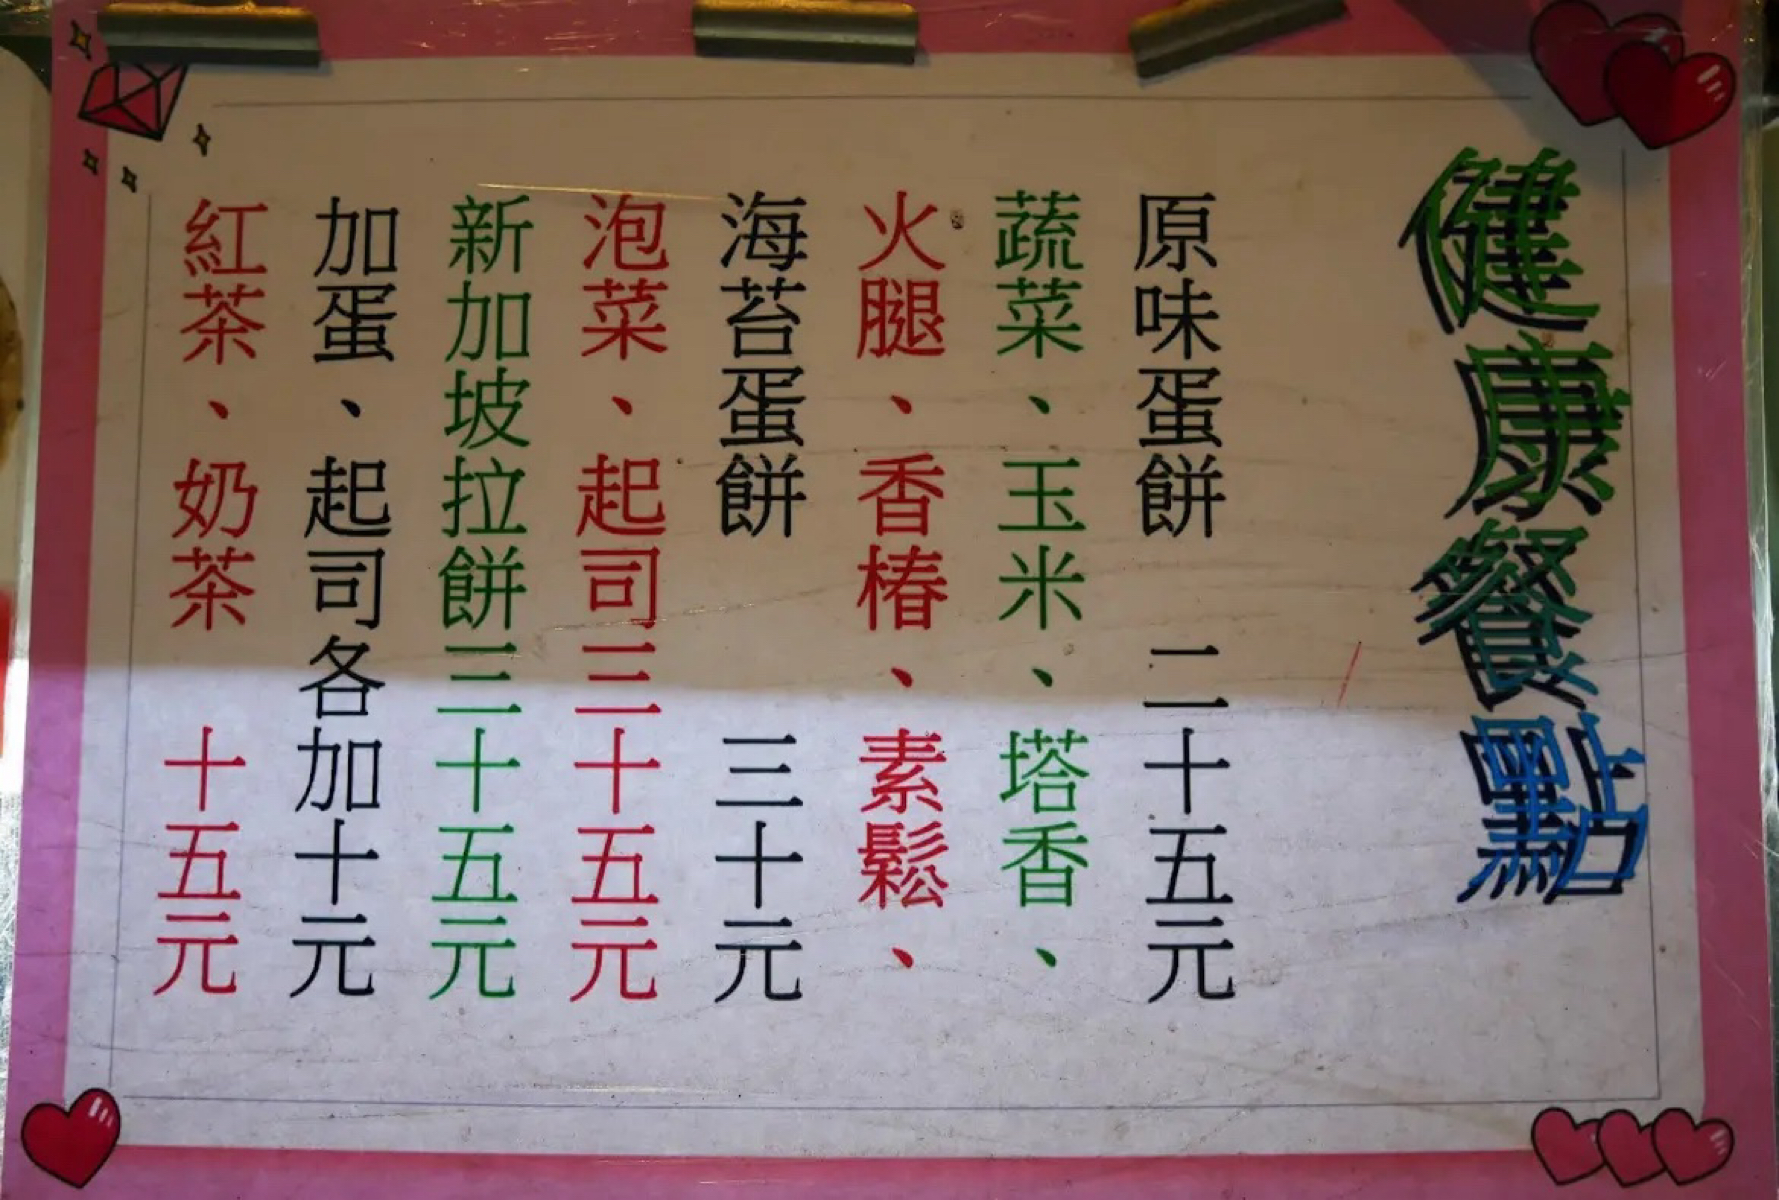 健康餐點
原味蛋餅 二十五元
蔬菜、玉米、塔香、
火腿、香椿、素鬆、
海苔蛋餅 三十元
泡菜、起司三十五元
新加坡拉餅三十五元
加蛋、起司各加十元
紅茶、奶茶 十五元